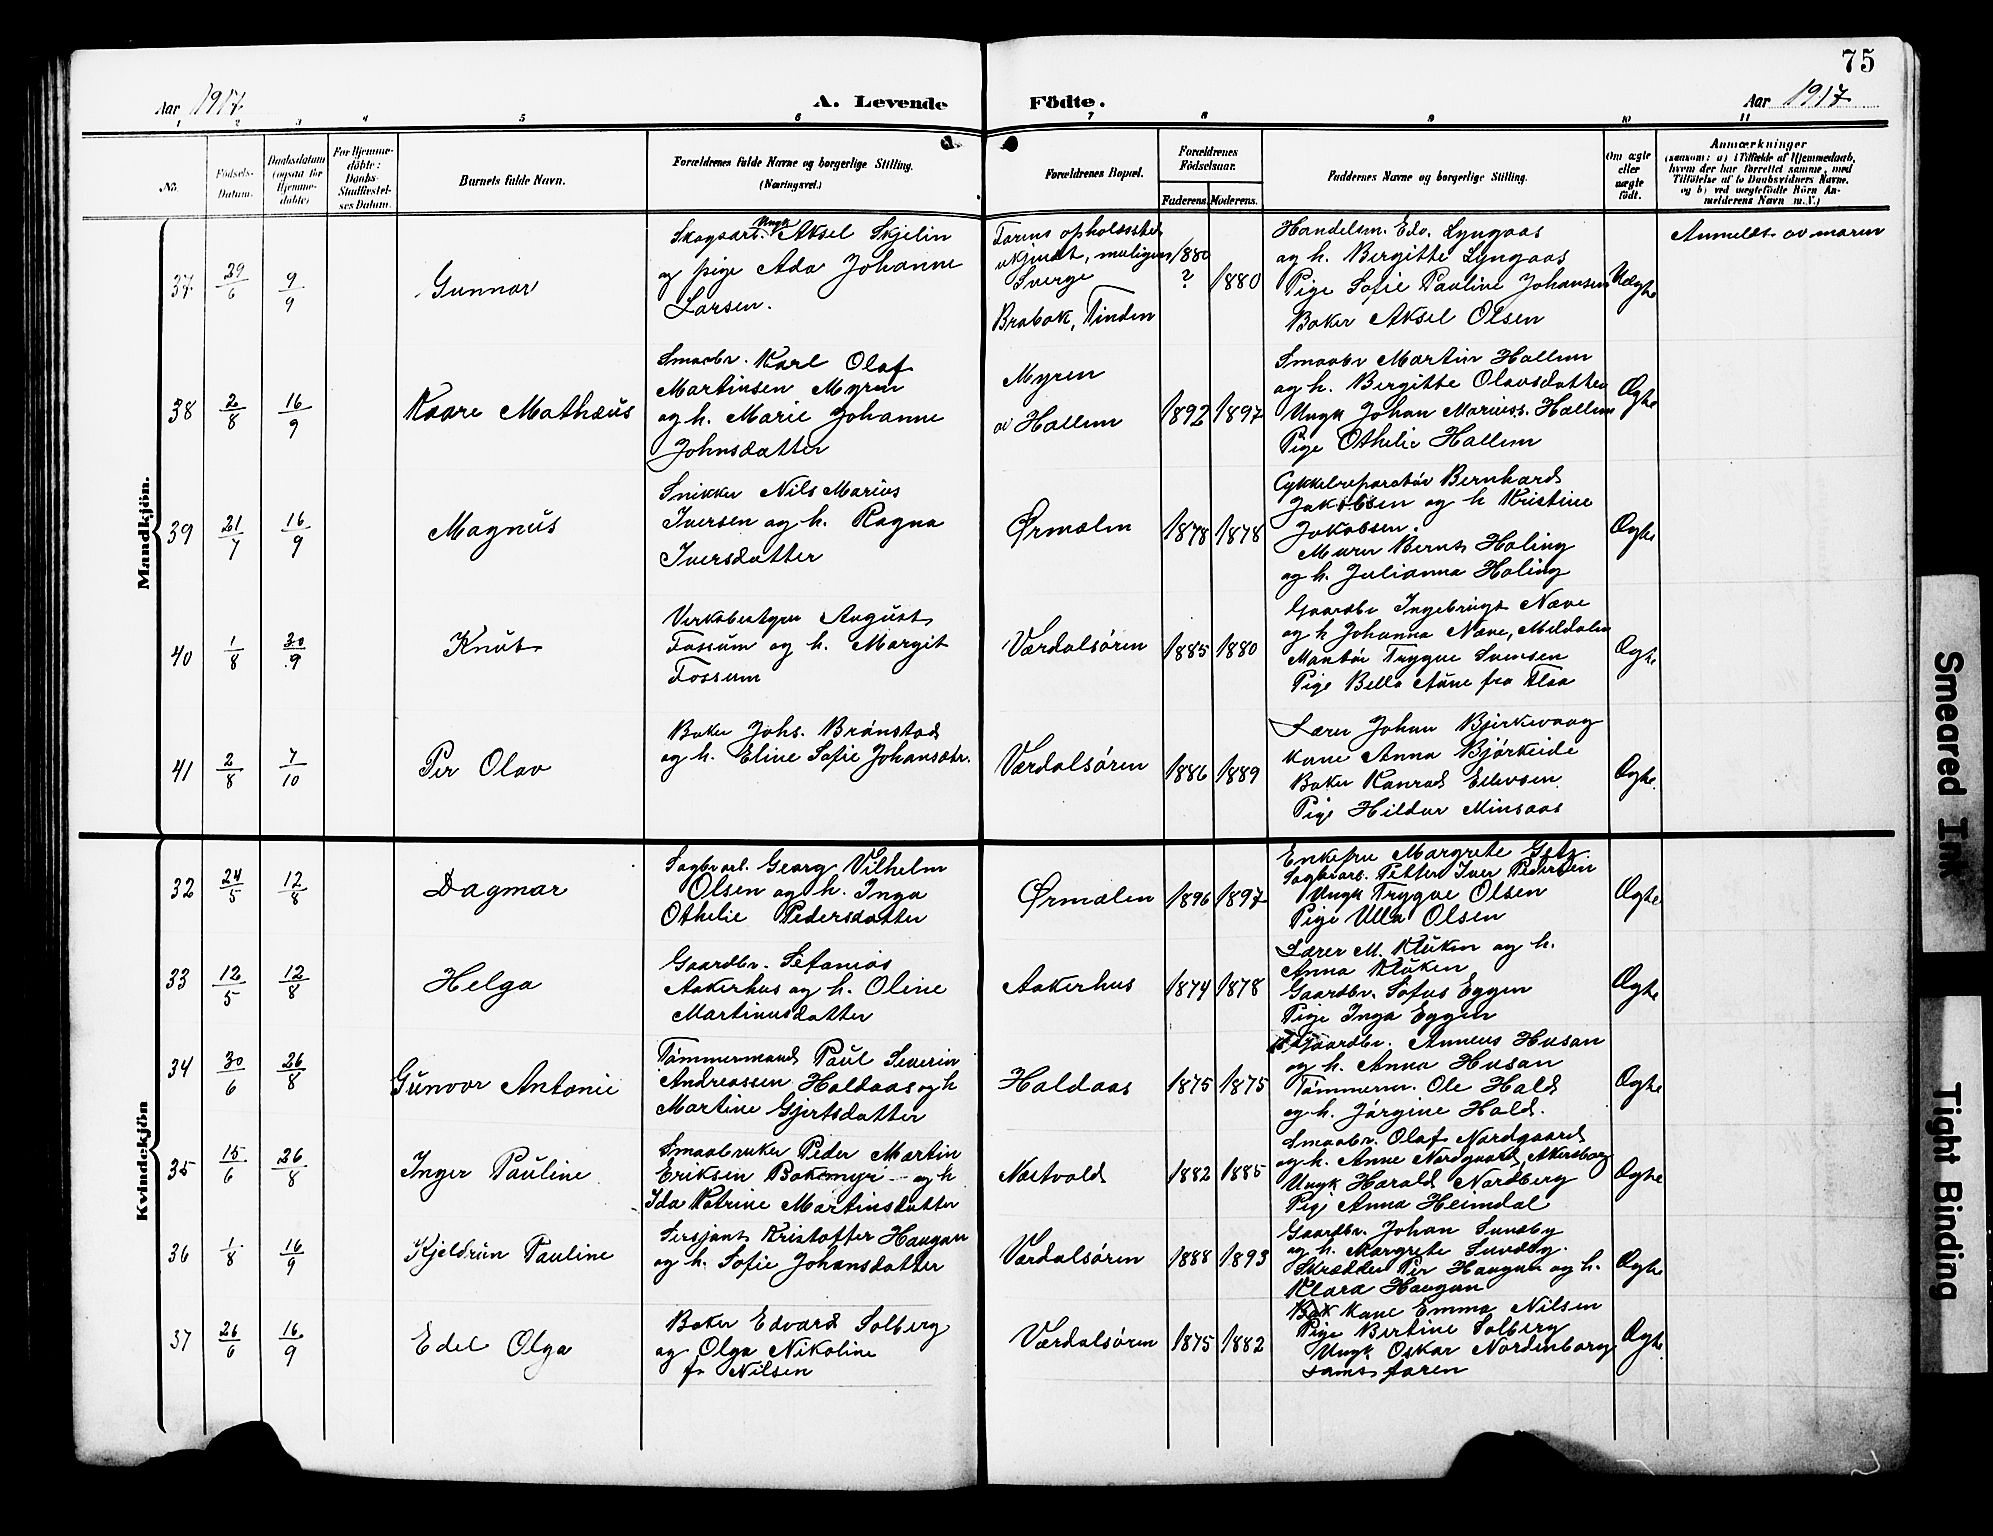 75
Aar 1917
A. Levende
Födte.
Aar 1917
1 2 3 4 5 6 7 8 9 10 11
No.
Födsels-
Datum.
Daabsdatum
(ogsaa for
Hjemme-
döbte)
For Hjemme-
döbte:
Daabs-
Stadfæstel-
ses Datum.
Barnets fulde Navn.
Forældrenes fulde Navne og borgerlige Stilling.
(Næringsvei.)
Forældrenes Bopæl.
Forældrenes
Födselsaar.
Faderens.
Moderens.
Faddernes Navne og borgerlige Stilling.
Om ægte
eller
uægte
födt.
Anmærkninger
(saasom: a) i Tilfælde af Hjemmedaab,
hvem der har forrettet samme, med
Tilföielse af to Daabsvidners Navne,
og b) ved uægtefödte Börn An-
melderens Navn m. V.)
Mandkjön.
37
29/6
9/9
Gunnar
Skogsarb. Ungk Aksel Skjelin
og pige Ada Johanne
Larsen.
Farens opholdssted
ukjendt, muligens
Sverge
Brabak, Tinden
1880
?
1880
Handelsm. Edv. Lyngaas
og h. Birgitte Lyngaas
Pige Sofie Pauline Johansen
Baker Aksel Olsen
Uægte
Anmeldt av moren
38
2/8
16/9
Kaare Mathæus
Smaabr. Karl Olaf
Martinsen Myren
og h. Marie Johanne
Johnsdatter
Myren
av Hallem
1892
1897
Smaabr Martin Hallem
og h. Bergitte Olavsdatter
Ungk Johan Mariuss. Hallem
Pige Othelie Hallem
Ægte
39
21/7
16/9
Magnus
Snikker Nils Marius
Iversen og h. Ragna
Iversdatter
Ørmælen
1878
1878
Cykkelreparatør Bernhard
Jakobsen og h Kristine
Jakobsen.
Murer Bernt Holing
og h. Julianna Holing
Ægte
40
1/8
30/9
Knut
Verksbestyrer August
Fossum og h. Margit
Fossum
Værdalsøren
1885
1880
Gaardbr Ingebrigt Næve
og h Johanna Næve, Mildalen
Montør Trygve Svensen
Pige Bella Aune fra Flaa
Ægte
41
2/8
7/10
Per Olav
Baker Johs. Brønstad
og h. Eline Sofie Johansdtr.
Værdalsøren
1886
1889
Lærer Johan Bjørkevaag
kone Anna Bjørkeide
Baker Konrad Ellevsen
Pige Hildur Minsaas
Ægte.
Kvindekjön
32
24/5
12/8
Dagmar
Sagbr.arb. Georg Vilhelm
Olsen og h. Inga
Othelie Pedersdatter
Ørmælen
1896
1897
Enkefru Margrete Getz
Sagbr.arb. Petter Iver Pedersen
Ungk Trygve Olsen
Pige Ulla Olsen
Ægte
33
12/5
12/8
Helga
Gaardbr. Sefanias
Aakerhus og h. Oline
Martinusdatter
Aakerhus
1874
1878
Lærer M. Kluken og h.
Anna Kluken
Gaardbr. Sofus Eggen
Pige Inga Eggen
Ægte
34
30/6
26/8
Gunvor Antonie
Tømmermand Paul Severin
Andreassen Haldaas og h
Martine Gjertsdatter
Haldaas
1875
1875
Gaardbr. Anneus Husan
og h. Anna Husan
Tømmerm. Ole Hald
og h. Jørgine Hald.
Ægte
35
15/6
26/8
Inger Pauline
Smaabruker Peder Martin
Eriksen Bakmyr og h
Ida Katrine Martinsdatter
Nestvold
1882
1885
Smaabr. Olaf Nordgaard
og h. Anne Nordgaard, Akersborg
Ungk Harald Nordberg
Pige Anna Heimdal
Ægte
36
1/8
16/9
Kjeldrun Pauline
Sersjant Kristoffer Haugan
og h. Sofie Johansdatter
Værdalsøren
1888
1893
Gaardbr. Johan Sundby
og h. Margrete Sundby.
Skrædder Per Haugan og h.
Klara Haugan
Ægte
37
26/6
16/9
Edel Olga
Baker Edvard Solberg
og Olga Nikoline
f. Nilsen
Værdalsøren
1875
1882
Kone Emma Nilsen
Pige Bertine Solberg
Ungk Oskar Nordenborg
samt faren
Ægte
Smeared Ink
Tight Binding